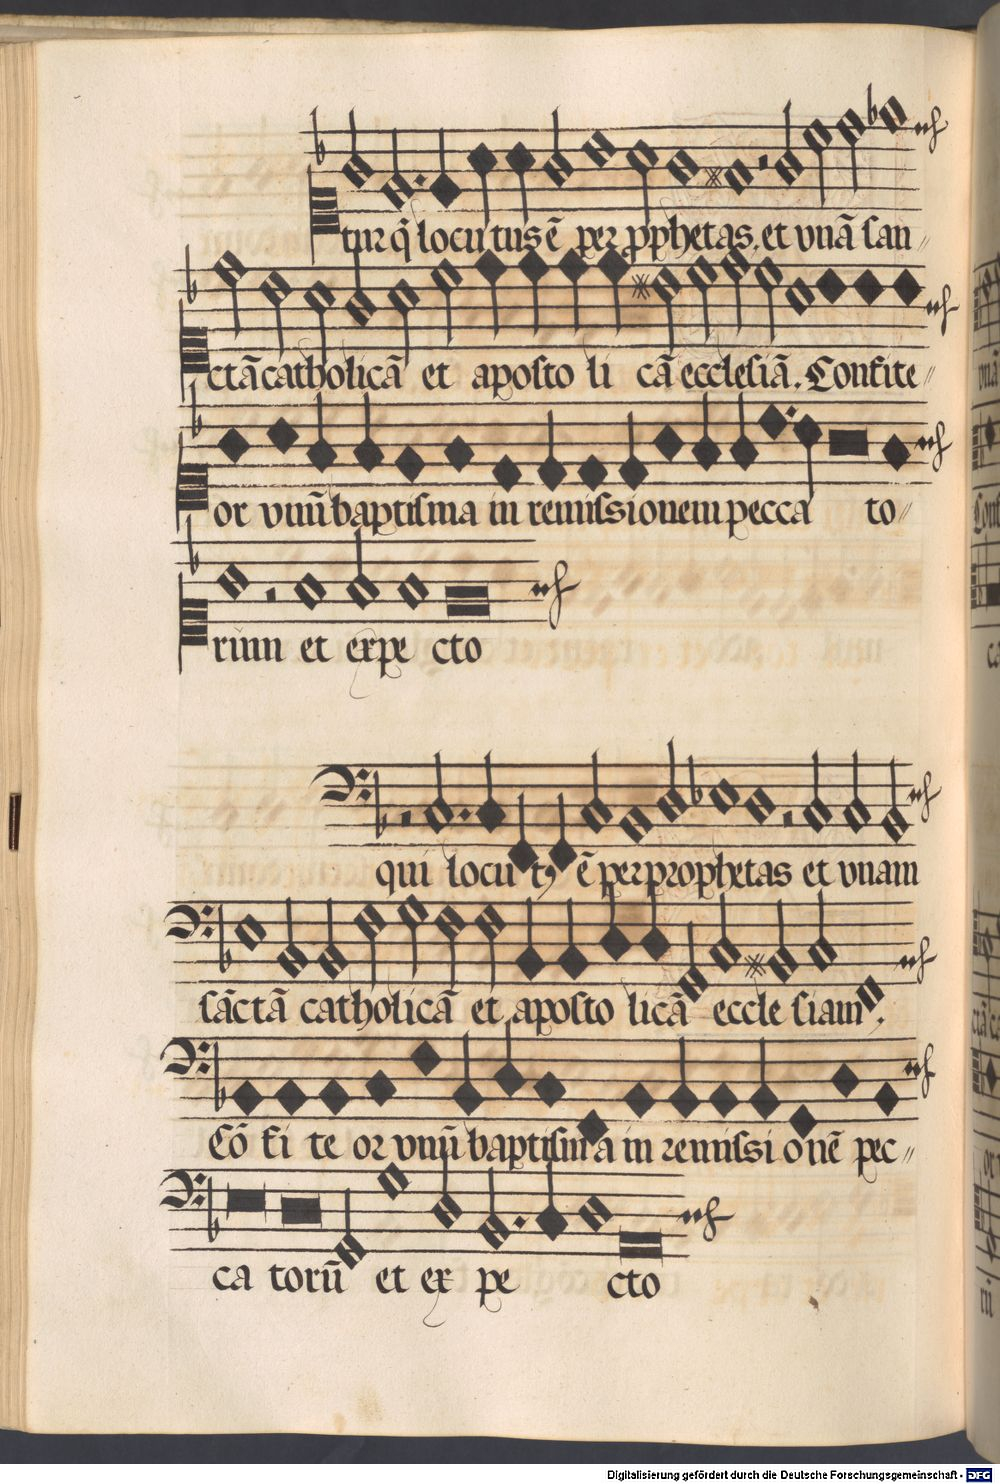 tur q̃ locutus ẽ per ꝓphetas. et vnã san//
ctã catholicã et aposto li cã ecclesiã. Confite//
or vnũ baptisma in remissionem pecca to//
rum et expe cto
qui locutꝰ ẽ per prophetas et vnam
sãctã catholicã et aposto licã eccle siam.
Cõ fi te or vnũ baptisma in remissi onẽ pec//
ca torũ et ex pe cto
Digitalisierung gefördert durch die Deutsche Forschungsgemeinschaft - DFG